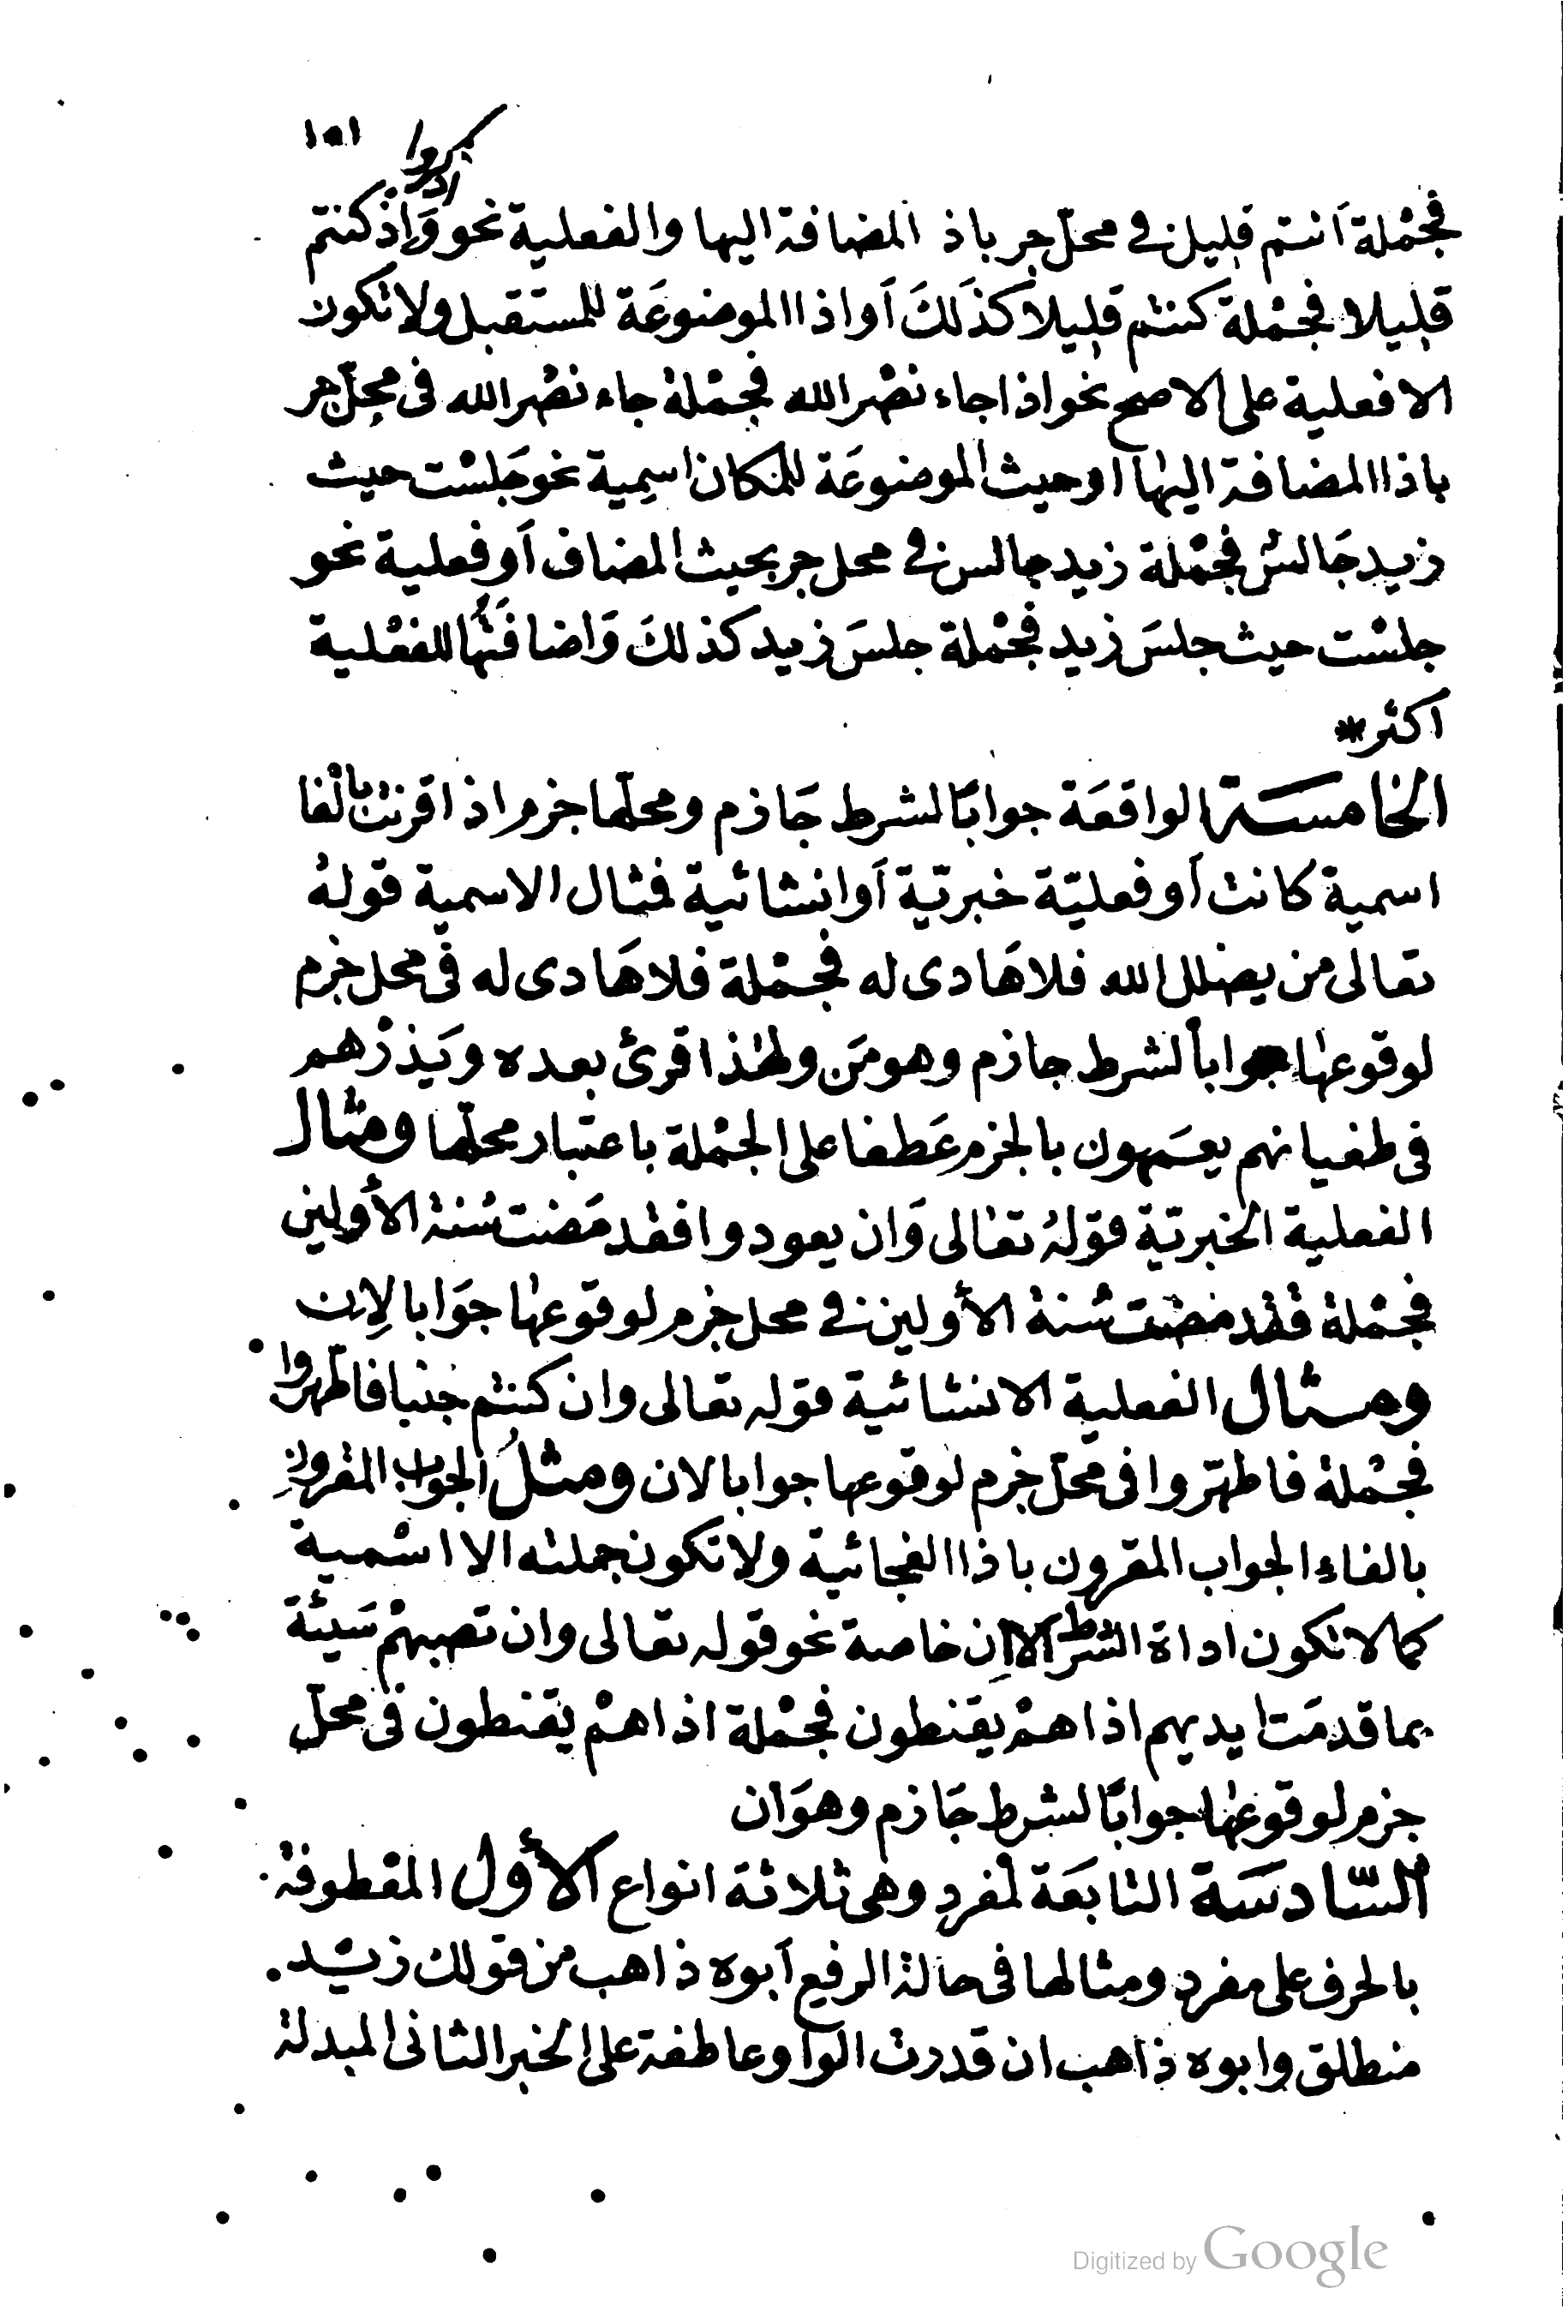 ١٥١
اذكروا
فجمْلة اَنتم قليل في محلّ جر باذ المضافة اليها والفعلية نحو وَاِذ كنتم
قليلا فجمْلة كنتم قليلا كذَلكَ اَو اذا الموضوعَة للمستقبل ولا تكون
الا فعلية على الاصح نحو اذا جاء نصْر الله فجمْلة جاء نصْر الله فى محِلّ جر
باذا المضافة اليها او حيث الموضوعَة للمكان اسمِية نحو جَلسْت حيث
زيد جَالسٌ فجمْلة زيد جالس في محل جر بحيث المضاف اَو فعلية نحو
جلسْت حيث جلسَ زيد فجمْلة جلسَ زيد كذلكَ وَاضافَتُهَا للفعْلية
اكثر *
الخامسَة الواقعَة جوابًا لشرط جَازم ومحلّها جزم اذا قرنت بالْفا
اسمية كانت اَو فعليّة خبريّة اَو انشائية فمثال الاسمية قولهُ
تعالى من يضلل الله فلا هَادى له فجمْلة فلا هَادى له فى محل جزم
لوقوعها جواباً لشرط جازم وهو مَن ولهذا قرئ بعده ويَذرْهم
فى طغيانهم يعمَهون بالجزم عَطفا على الجمْلة باعتبار محلّها ومثال
الفعلية الخبريّة قولهُ تعالى وَان يعودوا فقد مَضت سُنة الأولين
فجمْلة فقد مضت سُنة الأولين في محل جزم لوقوعها جوَابا لاِن
ومثال الفعلية الانشائية قوله تعالى وان كنتم جنبا فاطّهروا
فجمْلة فاطهّروا فى محلّ جزم لوقوعها جوابا لان ومثلُ الجواب المقرون
بالفاء الجواب المقرون باذا الفجائية ولا تكون جملته الا اسْمية
كما لا تكون اداة الشرط الا اِن خاصة نحو قوله تعالى وان تصبهمْ سَيئة
بما قدمَت ايديهم اذا همْ يقنطون فجمْلة اذا همْ يقنطون فى محلّ
جزم لوقوعها جوابًا لشرط جَازم وهوَ ان
السّادسَة التابعَة لمفرد وهى ثلاثة انواع الأول المعْطوفة
بالحرف على مفرد ومثالها فى حالة الرفع اَبوه ذاهب من قولك زيْد
منطلق وابوه ذاهب ان قدرت الواو عاطفة على الخبر الثانى المبدلة
Digitized by Google